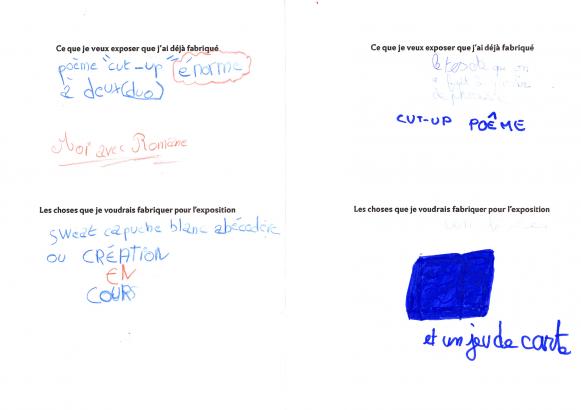 Ce que je veux exposer que j'ai déjà fabriqué
poème "cut-up" énorme
à deux (duo)
Moi avec Romane
Les choses que je voudrais fabriquer pour l'exposition
sweat capuche blanc abécédère
ou CRÉATION
EN
COURS
Ce que je veux exposer que j'ai déjà fabriqué
CUT-UP POÊME
Les choses que je voudrais fabriquer pour l'exposition
et un jeu de carte